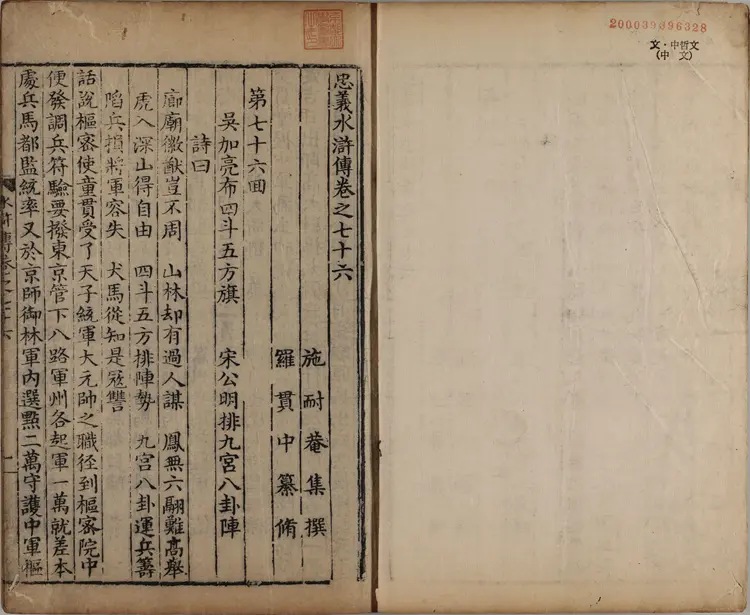 200039896328
文・中哲文
(中 文)
忠義水滸傳卷之七十六
施耐菴集撰
羅貫中纂脩
第七十六回
吳加亮布四斗五方旗 宋公明排九宮八卦陣
詩曰
廊廟徽猷豈不周 山林却有過人謀 鳳無六翮難高舉
虎入深山得自由 四斗五方排陣勢 九宮八卦運兵籌
陷兵損將軍容失 犬馬從知是寇讐
話說樞密使童貫受了天子統軍大元帥之職徑到樞密院中
便發調兵符驗要撥東京管下八路軍州各起軍一萬就差本
處兵馬都監統率又於京師御林軍內選點二萬守護中軍樞
水滸傳卷之七十六